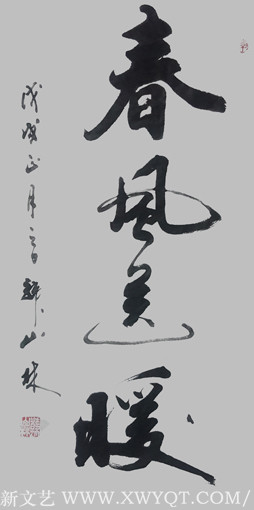 春風送暖
戊戌正月
山林
新文艺 WWW.XWYQT.COM/